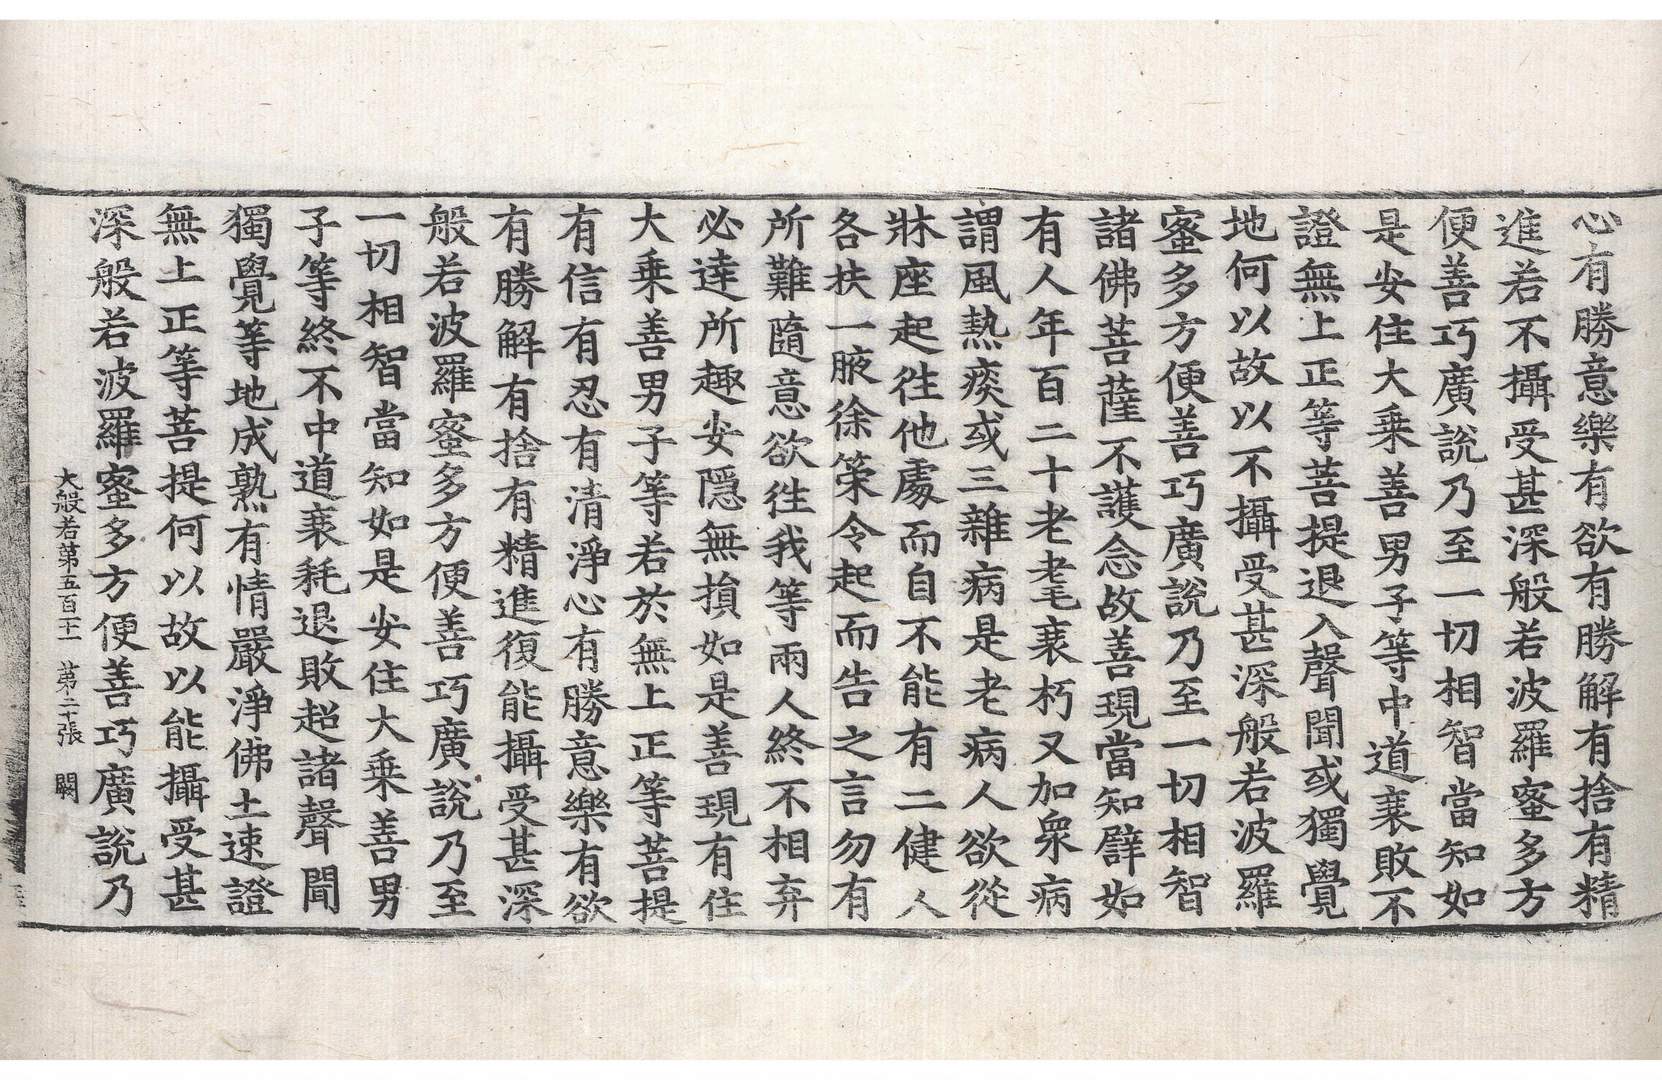 心有勝意樂有欲有勝解有捨有精
進若不攝受甚深般若波羅蜜多方
便善巧廣說乃至一切相智當知如
是安住大乘善男子等中道衰敗不
證無上正等菩提退入聲聞或獨覺
地何以故以不攝受甚深般若波羅
蜜多方便善巧廣說乃至一切相智
諸佛菩薩不護念故善現當知譬如
有人年百二十老耄衰朽又加衆病
謂風熱痰或三雜病是老病人欲從
牀座起往他處而自不能有二健人
各扶一腋徐策令起而告之言勿有
所難隨意欲往我等兩人終不相弃
必達所趣安隱無損如是善現有住
大乘善男子等若於無上正等菩提
有信有忍有清淨心有勝意樂有欲
有勝解有捨有精進復能攝受甚深
般若波羅蜜多方便善巧廣說乃至
一切相智當知如是安住大乘善男
子等終不中道衰耗退敗超諸聲聞
獨覺等地成熟有情嚴淨佛土速證
無上正等菩提何以故以能攝受甚
深般若波羅蜜多方便善巧廣說乃
大般若第五百十一 第二十張 闕